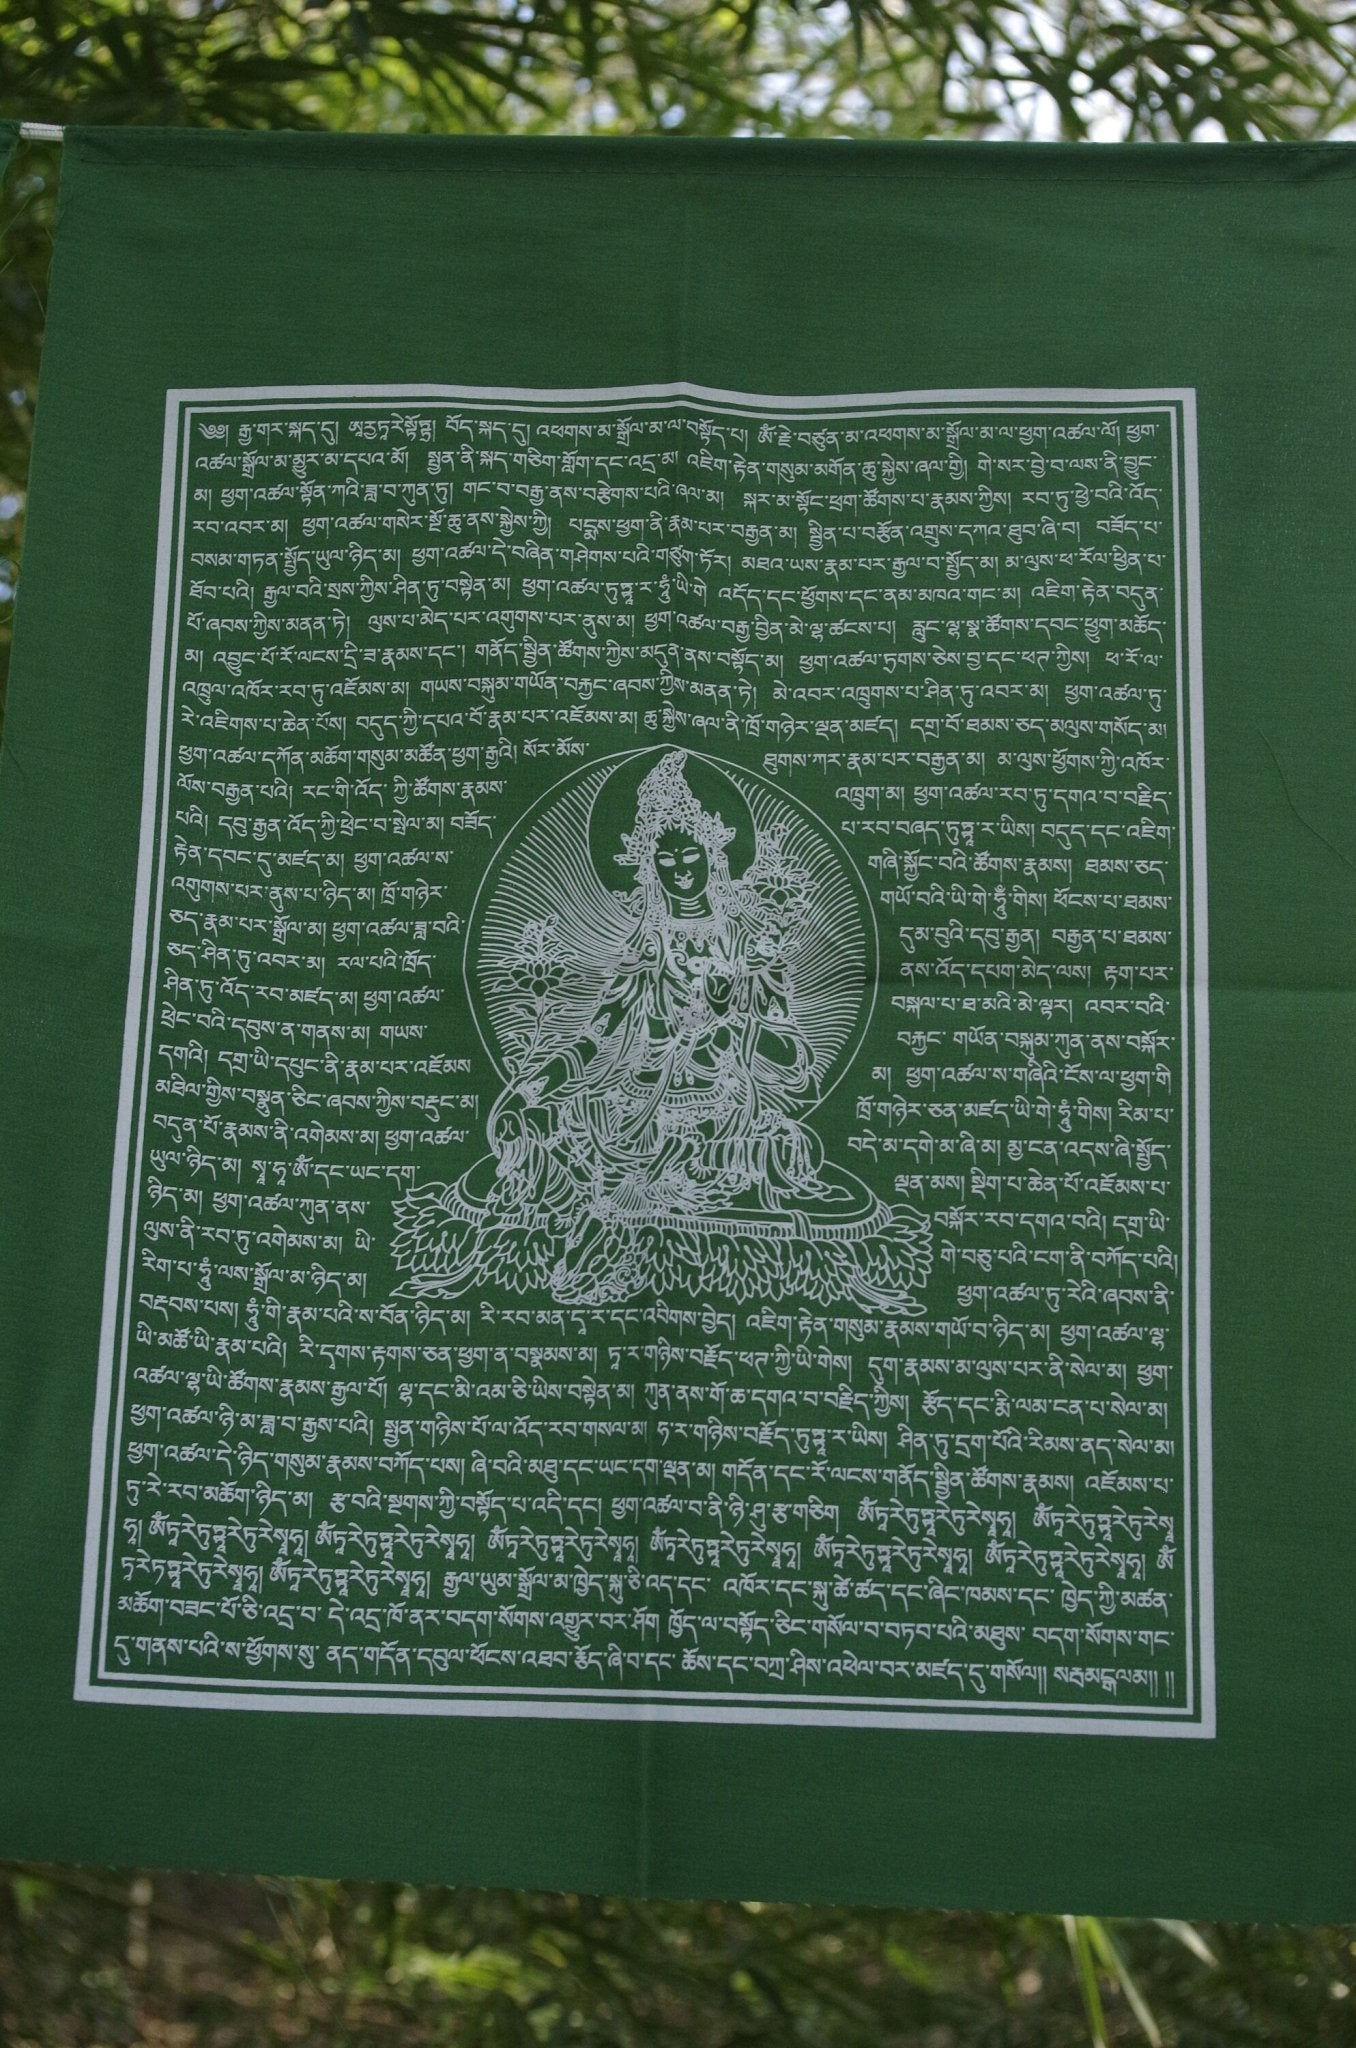 ༄༅། རྒྱ་གར་སྐད་དུ། ཨཱརྱཏཱརེསྟོཏྲ། བོད་སྐད་དུ། འཕགས་མ་སྒྲོལ་མ་ལ་བསྟོད་པ། ཨོཾ་རྗེ་བཙུན་མ་འཕགས་མ་སྒྲོལ་མ་ལ་ཕྱག་འཚལ་ལོ། ཕྱག་
འཚལ་སྒྲོལ་མ་མྱུར་མ་དཔའ་མོ། སྤྱན་ནི་སྐད་གཅིག་གློག་དང་འདྲ་མ། འཇིག་རྟེན་གསུམ་མགོན་ཆུ་སྐྱེས་ཞལ་གྱི། གེ་སར་བྱེ་བ་ལས་ནི་བྱུང་
མ། ཕྱག་འཚལ་སྟོན་ཀའི་ཟླ་བ་ཀུན་ཏུ། གང་བ་བརྒྱ་ནས་བརྩེགས་པའི་ཞལ་མ། སྐར་མ་སྟོང་ཕྲག་ཚོགས་པ་རྣམས་ཀྱིས། རབ་ཏུ་ཕྱེ་བའི་འོད་
རབ་འབར་མ། ཕྱག་འཚལ་གསེར་སྔོ་ཆུ་ནས་སྐྱེས་ཀྱི། པདྨས་ཕྱག་ནི་རྣམ་པར་བརྒྱན་མ། སྦྱིན་པ་བརྩོན་འགྲུས་དཀའ་ཐུབ་ཞི་བ། བཟོད་པ་
བསམ་གཏན་སྤྱོད་ཡུལ་ཉིད་མ། ཕྱག་འཚལ་དེ་བཞིན་གཤེགས་པའི་གཙུག་ཏོར། མཐའ་ཡས་རྣམ་པར་རྒྱལ་བ་སྤྱོད་མ། མ་ལུས་ཕ་རོལ་ཕྱིན་པ་
ཐོབ་པའི། རྒྱལ་བའི་སྲས་ཀྱིས་ཤིན་ཏུ་བསྟེན་མ། ཕྱག་འཚལ་ཏུཏྟཱ་ར་ཧཱུྃ་ཡི་གེ འདོད་དང་ཕྱོགས་དང་ནམ་མཁའ་གང་མ། འཇིག་རྟེན་བདུན་
པོ་ཞབས་ཀྱིས་མནན་ཏེ། ལུས་པ་མེད་པར་འགུགས་པར་ནུས་མ། ཕྱག་འཚལ་བརྒྱ་བྱིན་མེ་ལྷ་ཚངས་པ། རླུང་ལྷ་སྣ་ཚོགས་དབང་ཕྱུག་མཆོད་
མ། འབྱུང་པོ་རོ་ལངས་དྲི་ཟ་རྣམས་དང་། གནོད་སྦྱིན་ཚོགས་ཀྱིས་མདུན་ནས་བསྟོད་མ། ཕྱག་འཚལ་ཏྲག་ཅེས་བྱ་དང་ཕཊ་ཀྱིས། ཕ་རོལ་
འཁྲུལ་འཁོར་རབ་ཏུ་འཇོམས་མ། གཡས་བསྐུམ་གཡོན་བརྐྱང་ཞབས་ཀྱིས་མནན་ཏེ། མེ་འབར་འཁྲུགས་པ་ཤིན་ཏུ་འབར་མ། ཕྱག་འཚལ་ཏུ་
རེ་འཇིགས་པ་ཆེན་པོས། བདུད་ཀྱི་དཔའ་བོ་རྣམ་པར་འཇོམས་མ། ཆུ་སྐྱེས་ཞལ་ནི་ཁྲོ་གཉེར་ལྡན་མཛད། དགྲ་བོ་ཐམས་ཅད་མལུས་གསོད་མ།
ཕྱག་འཚལ་དཀོན་མཆོག་གསུམ་མཚོན་ཕྱག་རྒྱའི། སོར་མོས་ ཐུགས་ཀར་རྣམ་པར་བརྒྱན་མ། མ་ལུས་ཕྱོགས་ཀྱི་འཁོར་
ལོས་བརྒྱན་པའི། རང་གི་འོད་ཀྱི་ཚོགས་རྣམས་ འཁྲུག་མ། ཕྱག་འཚལ་རབ་ཏུ་དགའ་བ་བརྗིད་
པའི། དབུ་རྒྱན་འོད་ཀྱི་ཕྲེང་བ་སྤེལ་མ། བཞོད་ པ་རབ་བཞད་ཏུཏྟཱ་ར་ཡིས། བདུད་དང་འཇིག་
རྟེན་དབང་དུ་མཛད་མ། ཕྱག་འཚལ་ས་ གཞི་སྐྱོང་བའི་ཚོགས་རྣམས། ཐམས་ཅད་
འགུགས་པར་ནུས་པ་ཉིད་མ། ཁྲོ་གཉེར་ གཡོ་བའི་ཡི་གེ་ཧཱུྃ་གིས། ཕོངས་པ་ཐམས་
ཅད་རྣམ་པར་སྒྲོལ་མ། ཕྱག་འཚལ་ཟླ་བའི་ དུམ་བུའི་དབུ་རྒྱན། བརྒྱན་པ་ཐམས་
ཅད་ཤིན་ཏུ་འབར་མ། རལ་པའི་ཁྲོད་ ནས་འོད་དཔག་མེད་ལས། རྟག་པར་
ཤིན་ཏུ་འོད་རབ་མཛད་མ། ཕྱག་འཚལ་ བསྐལ་པ་ཐ་མའི་མེ་ལྟར། འབར་བའི་
ཕྲེང་བའི་དབུས་ན་གནས་མ། གཡས་ བརྐྱང་གཡོན་བསྐུམ་ཀུན་ནས་བསྐོར་
དགའི། དགྲ་ཡི་དཔུང་ནི་རྣམ་པར་འཇོམས མ། ཕྱག་འཚལ་ས་གཞིའི་ངོས་ལ་ཕྱག་གི
མཐིལ་གྱིས་བསྣུན་ཅིང་ཞབས་ཀྱིས་བརྡུང་མ། ཁྲོ་གཉེར་ཅན་མཛད་ཡི་གེ་ཧཱུྃ་གིས། རིམ་པ་
བདུན་པོ་རྣམས་ནི་འགེམས་མ། ཕྱག་འཚལ་ བདེ་མ་དགེ་མ་ཞི་མ། མྱ་ངན་འདས་ཞི་སྤྱོད་
ཡུལ་ཉིད་མ། སྭཱ་ཧཱ་ཨོཾ་དང་ཡང་དག་ ལྡན་མས། སྡིག་པ་ཆེན་པོ་འཇོམས་པ་
ཉིད་མ། ཕྱག་འཚལ་ཀུན་ནས་ བསྐོར་རབ་དགའ་བའི། དགྲ་ཡི་
ལུས་ནི་རབ་ཏུ་འགེམས་མ། ཡི་ གེ་བཅུ་པའི་ངག་ནི་བཀོད་པའི།
རིག་པ་ཧཱུྃ་ལས་སྒྲོལ་མ་ཉིད་མ། ཕྱག་འཚལ་ཏུ་རེའི་ཞབས་ནི་
བརྡབས་པས། ཧཱུྃ་གི་རྣམ་པའི་ས་བོན་ཉིད་མ། རི་རབ་མན་དཱ་ར་དང་འབིགས་བྱེད། འཇིག་རྟེན་གསུམ་རྣམས་གཡོ་བ་ཉིད་མ། ཕྱག་འཚལ་ལྷ་
ཡི་མཚོ་ཡི་རྣམ་པའི། རི་དྭགས་རྟགས་ཅན་ཕྱག་ན་བསྣམས་མ། ཏཱ་ར་གཉིས་བརྗོད་ཕཊ་ཀྱི་ཡི་གེས། དུག་རྣམས་མ་ལུས་པར་ནི་སེལ་མ། ཕྱག་
འཚལ་ལྷ་ཡི་ཚོགས་རྣམས་རྒྱལ་པོ། ལྷ་དང་མི་འམ་ཅི་ཡིས་བསྟེན་མ། ཀུན་ནས་གོ་ཆ་དགའ་བ་བརྗིད་ཀྱིས། རྩོད་དང་རྨི་ལམ་ངན་པ་སེལ་མ།
ཕྱག་འཚལ་ཉི་མ་ཟླ་བ་རྒྱས་པའི། སྤྱན་གཉིས་པོ་ལ་འོད་རབ་གསལ་མ། ཧ་ར་གཉིས་བརྗོད་ཏུཏྟཱ་ར་ཡིས། ཤིན་ཏུ་དྲག་པོའི་རིམས་ནད་སེལ་མ།
ཕྱག་འཚལ་དེ་ཉིད་གསུམ་རྣམས་བཀོད་པས། ཞི་བའི་མཐུ་དང་ཡང་དག་ལྡན་མ། གདོན་དང་རོ་ལངས་གནོད་སྦྱིན་ཚོགས་རྣམས། འཇོམས་པ་
ཏུ་རེ་རབ་མཆོག་ཉིད་མ། རྩ་བའི་སྔགས་ཀྱི་བསྟོད་པ་འདི་དང་། ཕྱག་འཚལ་བ་ནི་ཉི་ཤུ་རྩ་གཅིག ཨོཾཏཱརེཏུཏྟཱརེཏུརེསྭཱཧཱ། ཨོཾཏཱརེཏུཏྟཱརེཏུརེསྭཱ
ཧཱ། ཨོཾཏཱརེཏུཏྟཱརེཏུརེསྭཱཧཱ། ཨོཾཏཱརེཏུཏྟཱརེཏུརེསྭཱཧཱ། ཨོཾཏཱརེཏུཏྟཱརེཏུརེསྭཱཧཱ། ཨོཾཏཱརེཏུཏྟཱརེཏུརེསྭཱཧཱ། ཨོཾཏཱརེཏུཏྟཱརེཏུརེསྭཱཧཱ། ཨོཾཏཱརེཏུཏྟཱརེཏུརེསྭཱཧཱ། ཨོཾ
ཏཱརེཏཏྟཱརེཏུརེསྭཱཧཱ། ཨོཾཏཱརེཏུཏྟཱརེཏུརེསྭཱཧཱ། རྒྱལ་ཡུམ་སྒྲོལ་མ་ཁྱེད་སྐུ་ཅི་འད་དང་ འཁོར་དང་སྐུ་ཚེ་ཚད་དང་ཞིང་ཁམས་དང་ ཁྱེད་ཀྱི་མཚན་
མཆོག་བཟང་པོ་ཅི་འདྲ་བ་ དེ་འདྲ་ཁོ་ནར་བདག་སོགས་འགྱུར་བར་ཤོག ཁྱོད་ལ་བསྟོད་ཅིང་གསོལ་བ་བཏབ་པའི་མཐུས་ བདག་སོགས་གང་
དུ་གནས་པའི་ས་ཕྱོགས་སུ་ ནད་གདོན་དབུལ་ཕོངས་འཐབ་རྩོད་ཞི་བ་དང་ ཆོས་དང་བཀྲ་ཤིས་འཕེལ་བར་མཛད་དུ་གསོལ།། སརྦམངྒལམ།། །།